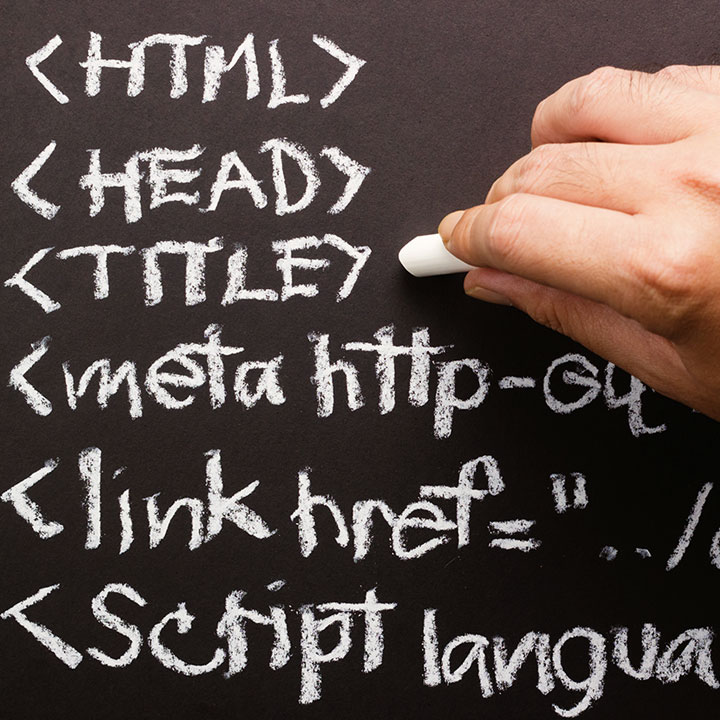 <HTML>
<HEAD>
<TITLE>
<meta http-eq
<link href="../
<Script langua